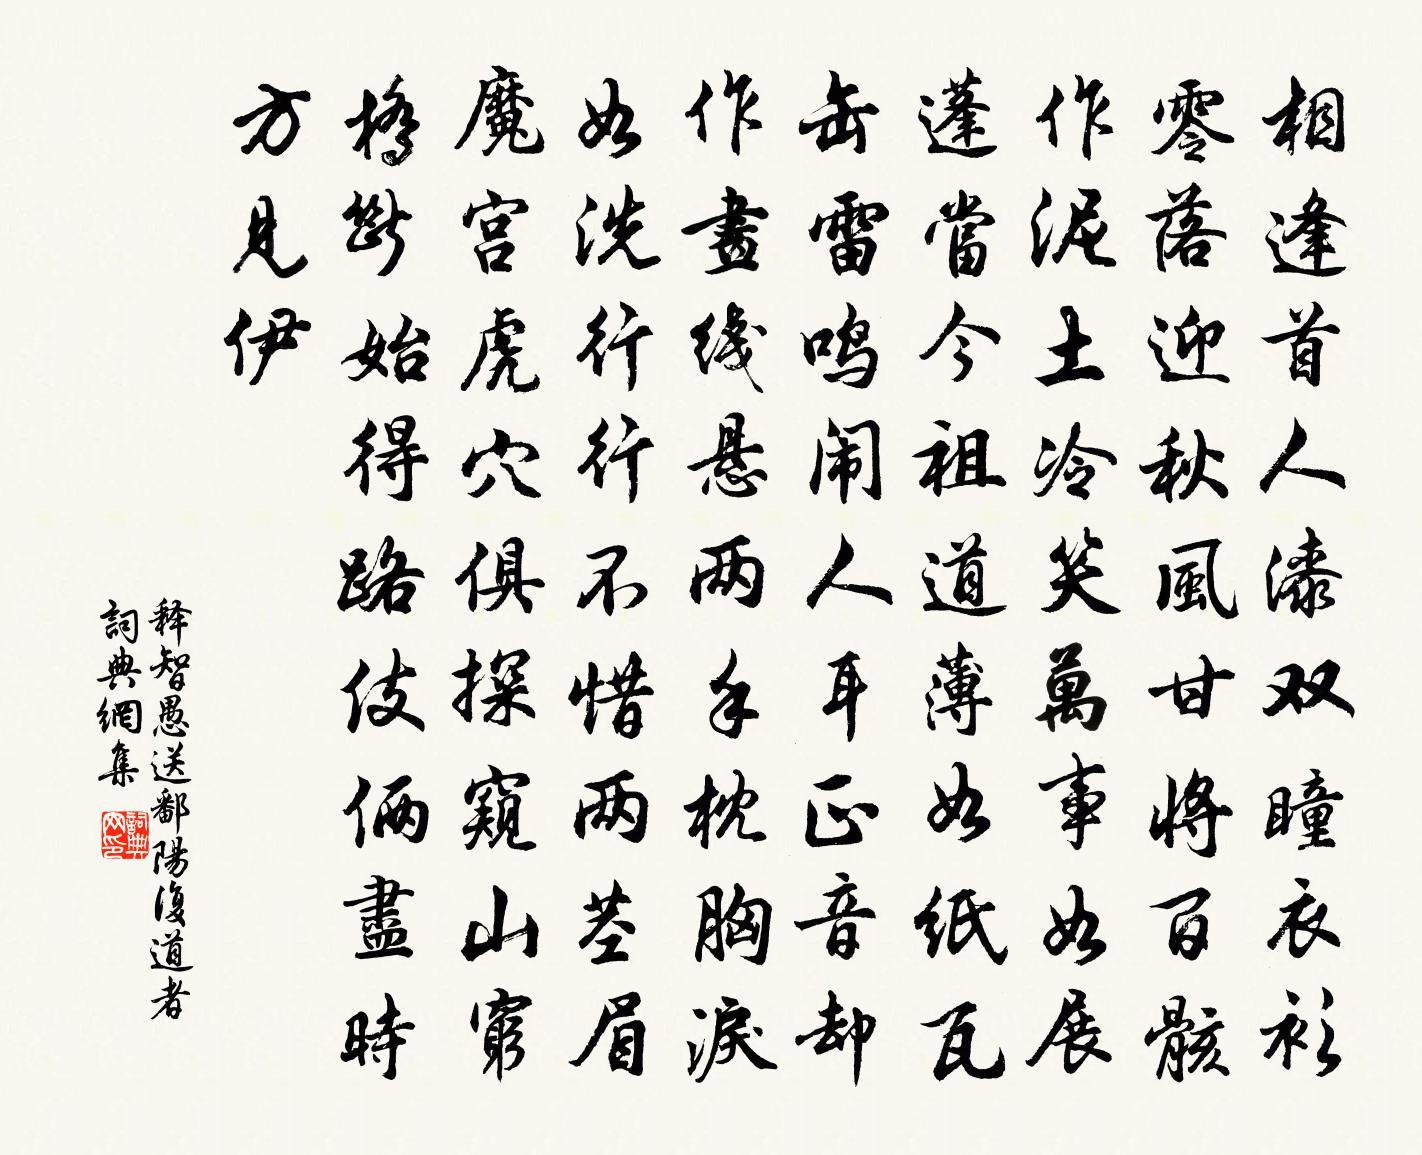 相逢首人漆双瞳衣衫
零落迎秋風甘將百骸
作泥土冷笑萬事如展
蓬當今祖道薄如紙瓦
缶雷鸣闹人耳正音却
作畫线悬两手枕胸淚
如洗行行不惜两茎眉
魔宫虎穴俱探窺山窮
橋斷始得路伎倆盡時
方見伊
释智愚送鄱陽復道者
詞典網集
詞典网印